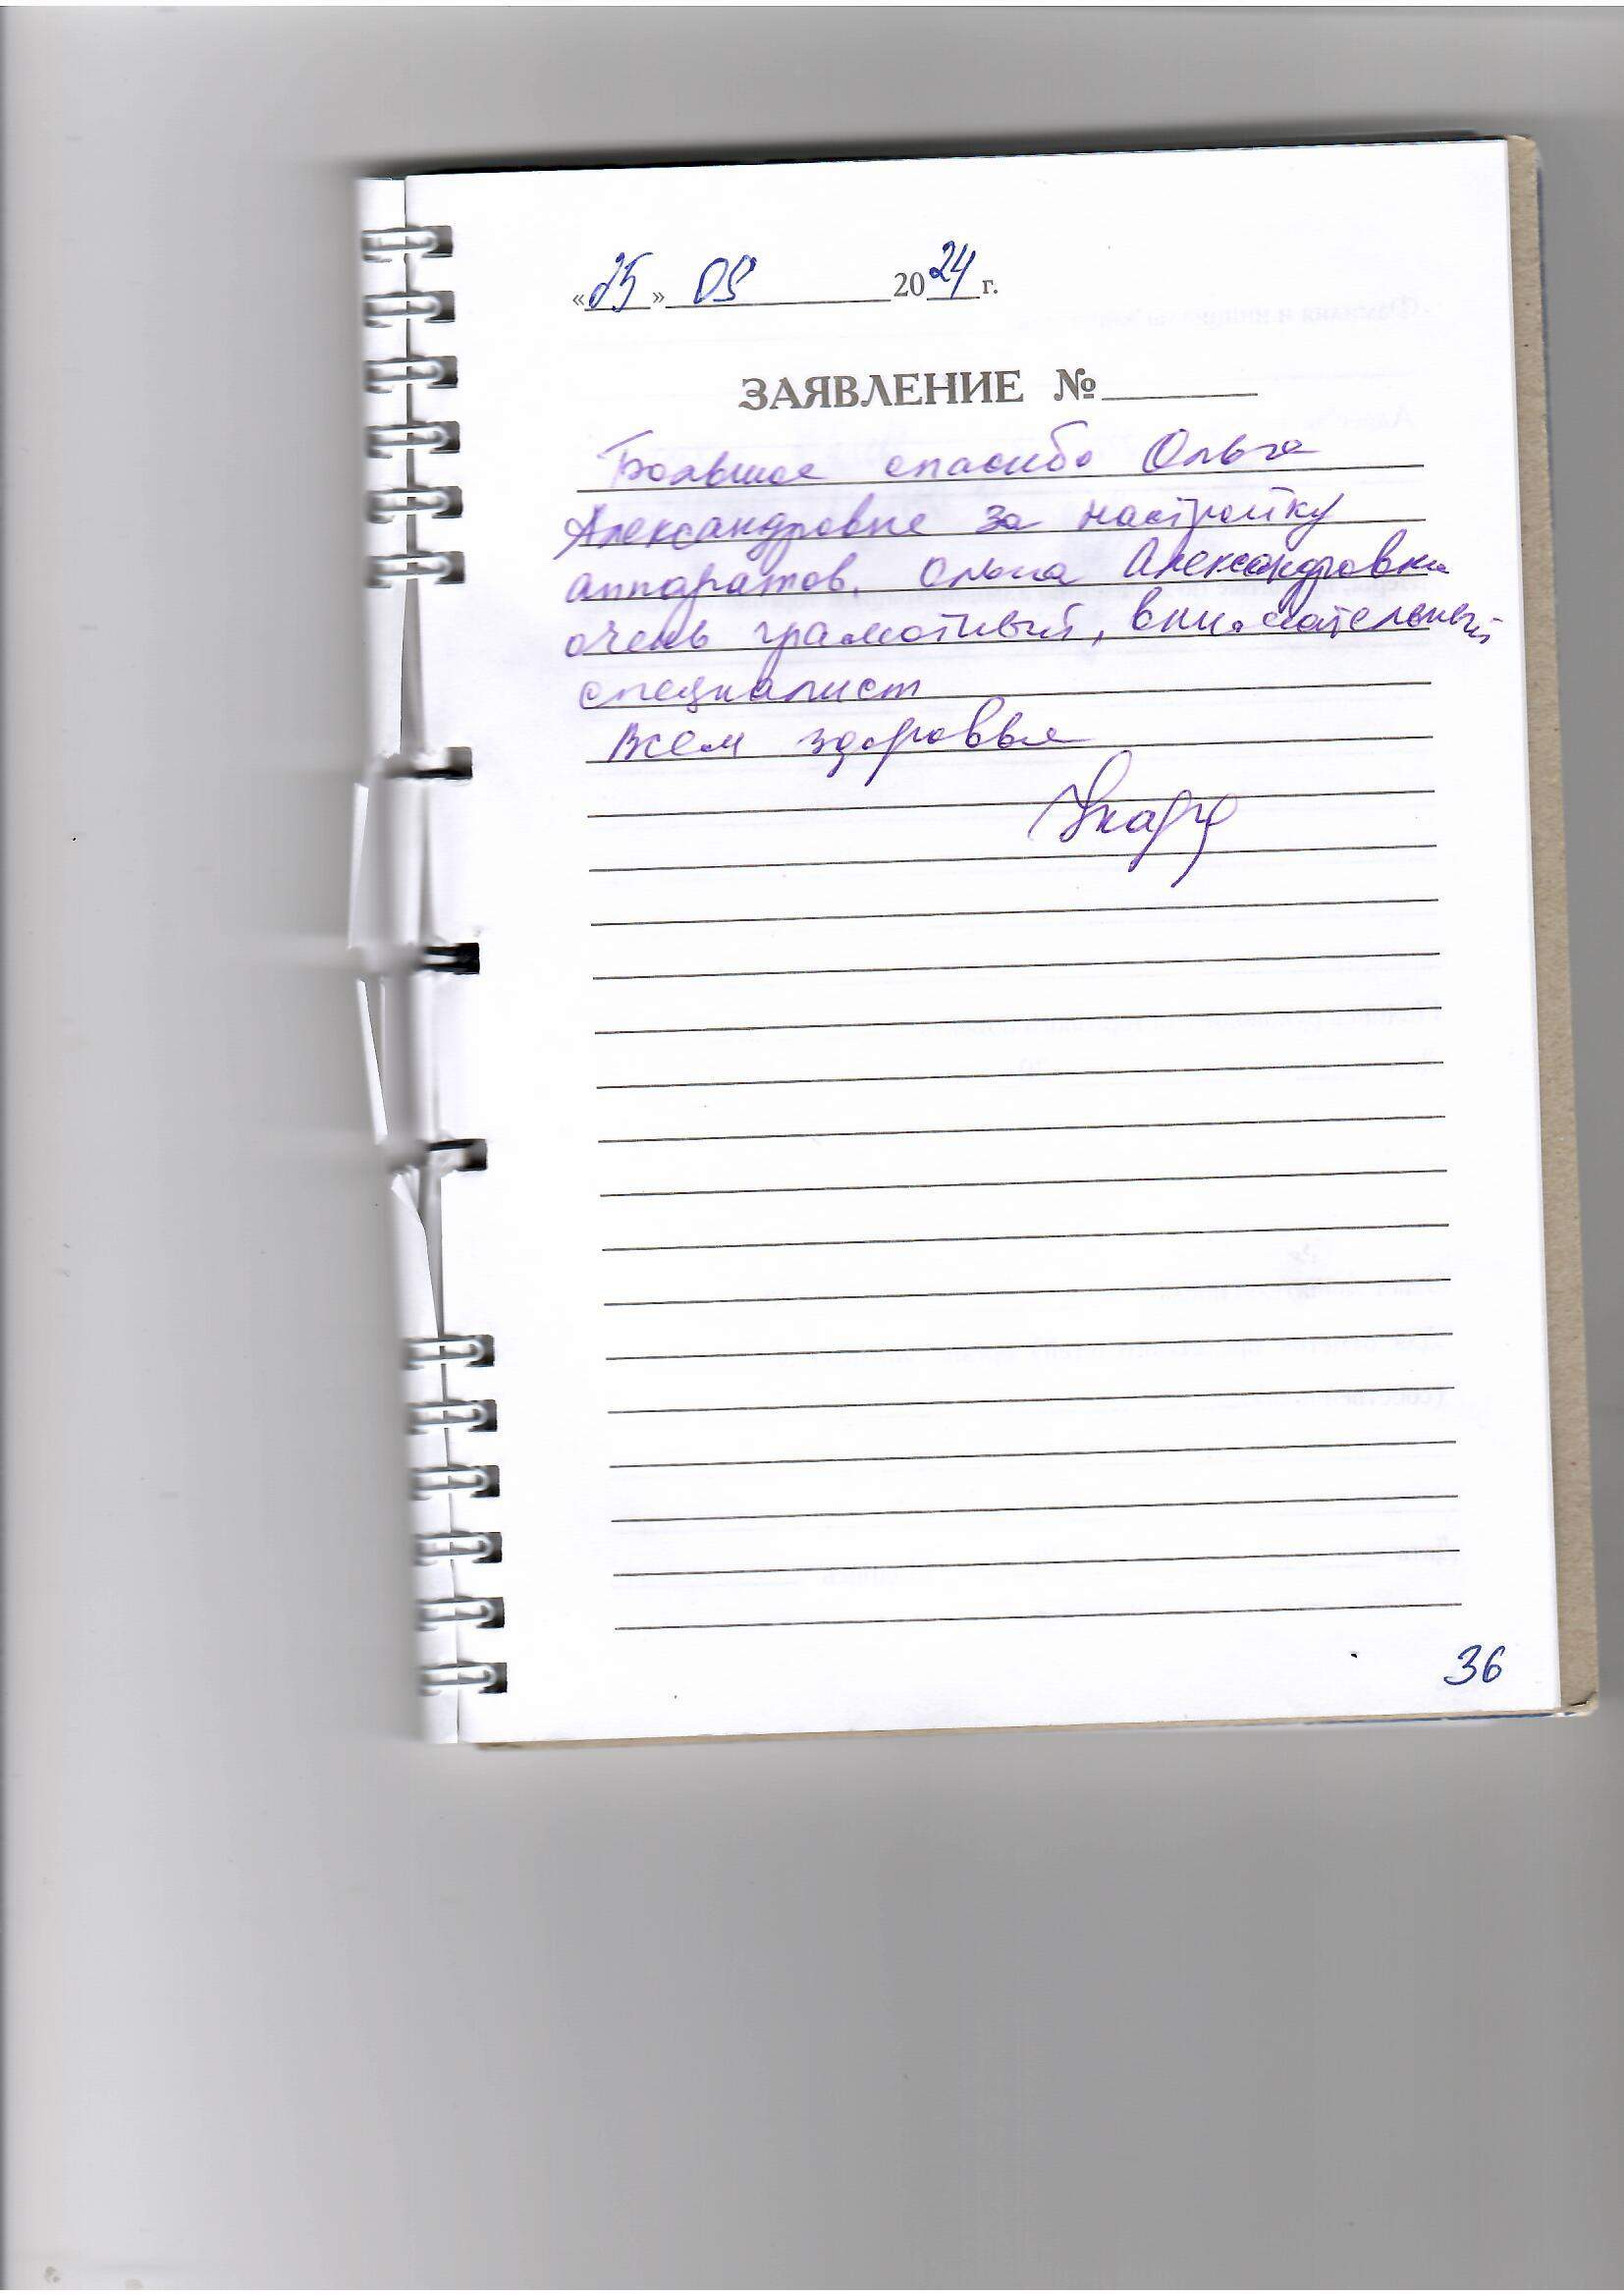 «25» 09 2024 г.
ЗАЯВЛЕНИЕ №
Большое спасибо Ольге
Александровне за настройку
аппаратов. Ольга Александровна
очень грамотный, внимательный
специалист
Всем здоровья
36